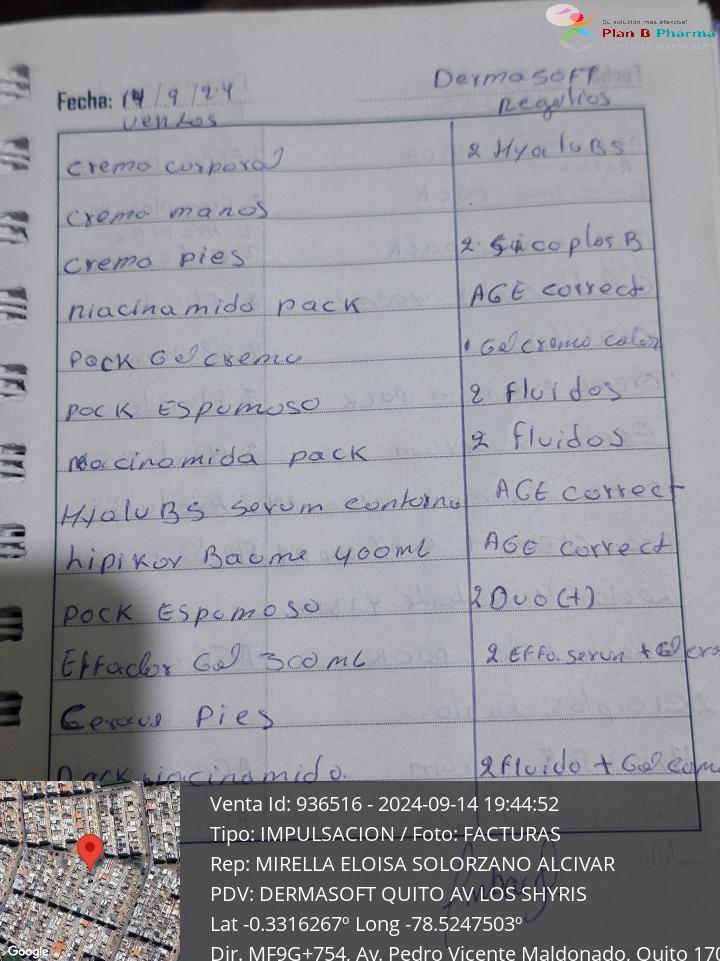 Su solución más efectiva!
Plan B Pharma
Dermasoft
Fecha: 14/9/24
Regalias
ventas
crema corporal 2 HyaluB5
crema manos
crema pies 2 Cicaplas B
niacinamida pack AGE correct
Pack Gel crema 1 Gel crema color
pack Espumoso 2 fluidos
niacinamida pack 2 fluidos
HyaluB5 serum contorno AGE correct
lipikar Baume 400ml AGE correct
pack Espumoso 2 Duo (+)
Effaclar Gel 300 ml 2 Effa. serum + Gel
Cerave Pies
Pack niacinamida. 2 fluido + Gel
Venta Id: 936516 - 2024-09-14 19:44:52
Tipo: IMPULSACION / Foto: FACTURAS
Rep: MIRELLA ELOISA SOLORZANO ALCIVAR
PDV: DERMASOFT QUITO AV.LOS SHYRIS
Lat -0.3316267º Long -78.5247503º
Dir. MF9G+754, Av. Pedro Vicente Maldonado, Quito 170
Google